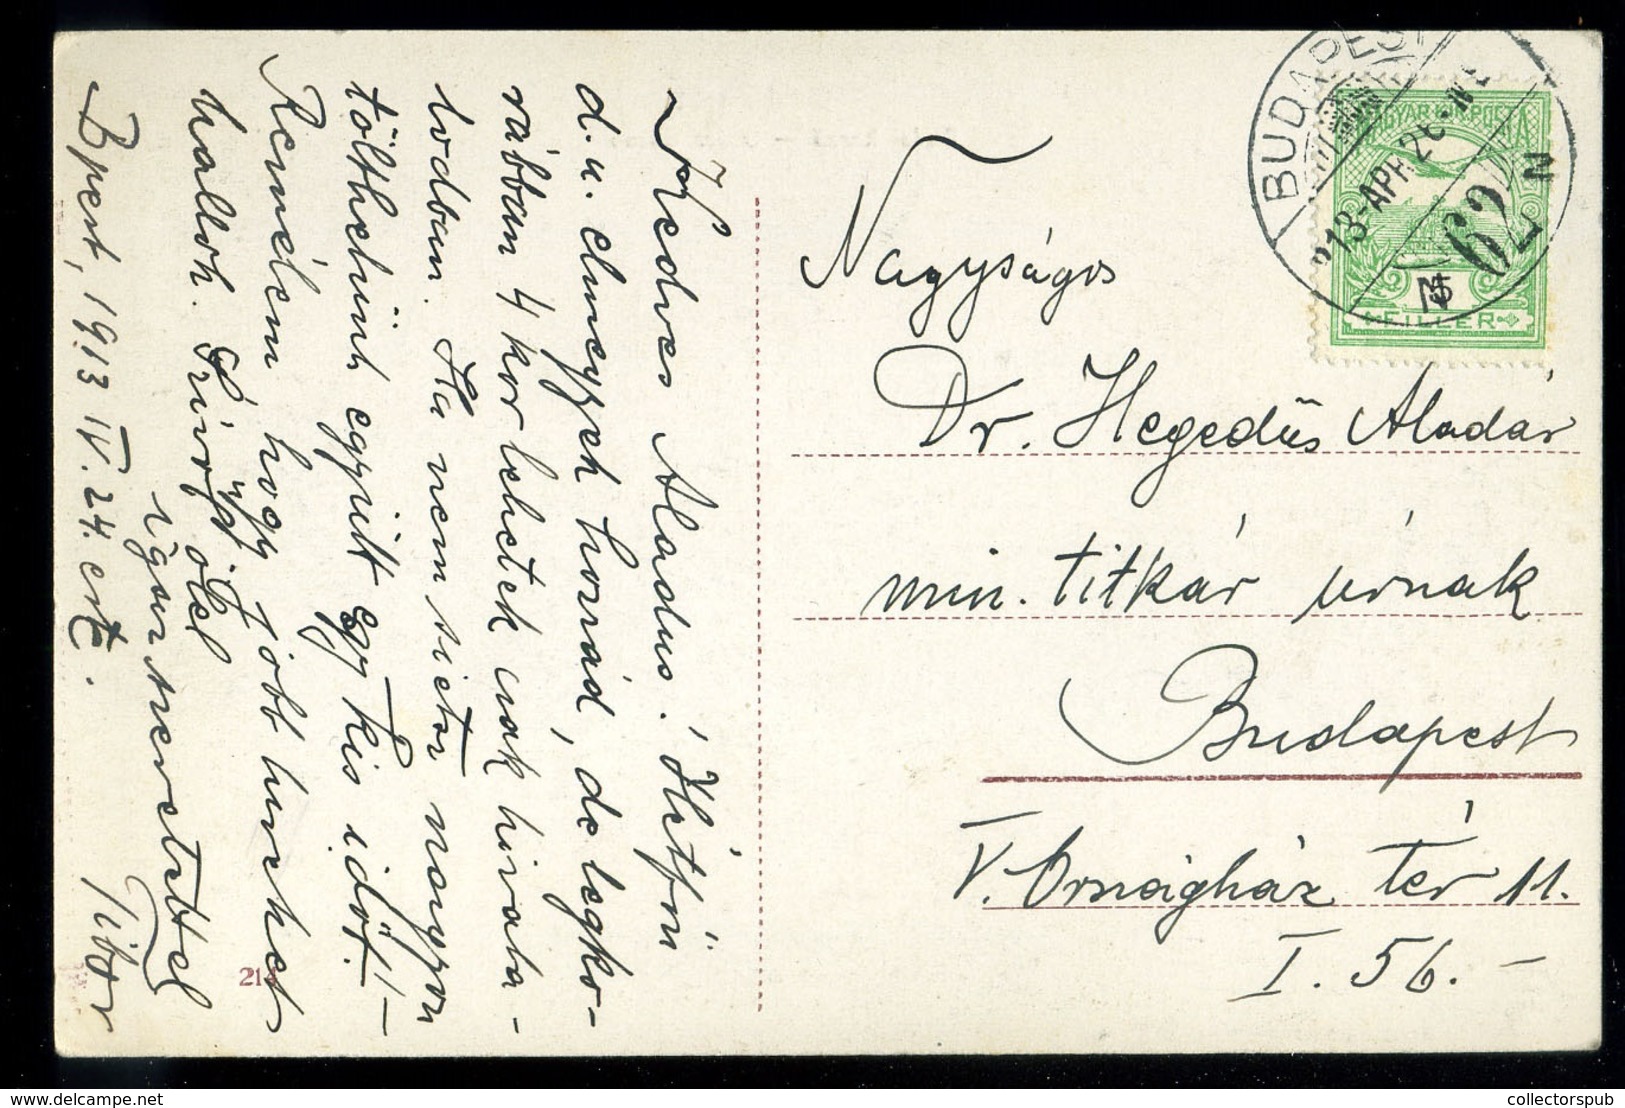 Kedves Aladus! Hétfőn
d.u. elmegyek hozzád, de legko-
rábban 4 kor lehetek csak hivata-
lodban. Ha nem sietsz nagyon
tölthetünk együtt egy kis időt! –
Remélem hogy jobb híreket
hallok. Szívből ölel
igaz szeretettel
Tibor
Bpest, 1913 IV. 24. este.
214
BUDAPEST
913 APR 26
62
N
MAGYAR KIR. POSTA
5
FILLÉR
Nagyságos
Dr. Hegedűs Aladár
min. titkár úrnak
Budapest
V. Országház tér 11.
I. 56. –
© delcampe.net
collectorspub